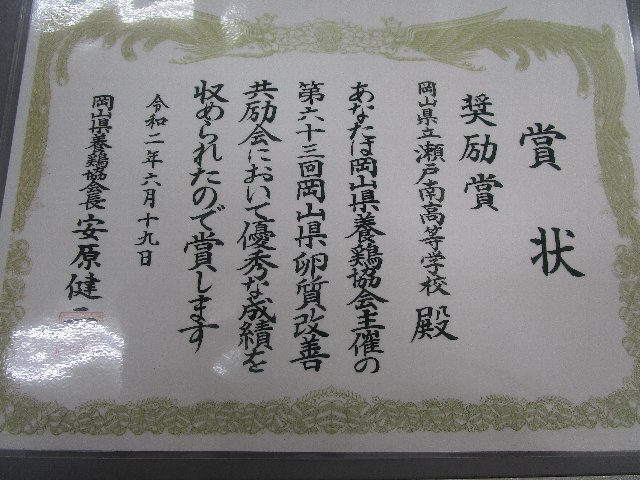 賞状
奨励賞
岡山県立瀬戸南高等学校 殿
あなたは岡山県養鶏協会主催の
第六十三回岡山県卵質改善
共励会において優秀な成績を
収められたので賞します
令和二年六月十九日
岡山県養鶏協会長 安原健